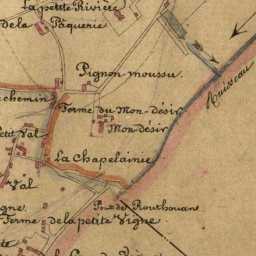 La petite Rivière
de la Pâquerie
Pignon moussu
chemin
Ferme du Mon désir
Mon désir
Ruisseau
tit Val
La Chapelainie
Val
Pont de Routhouan
gne
Ferme de la petite Vigne